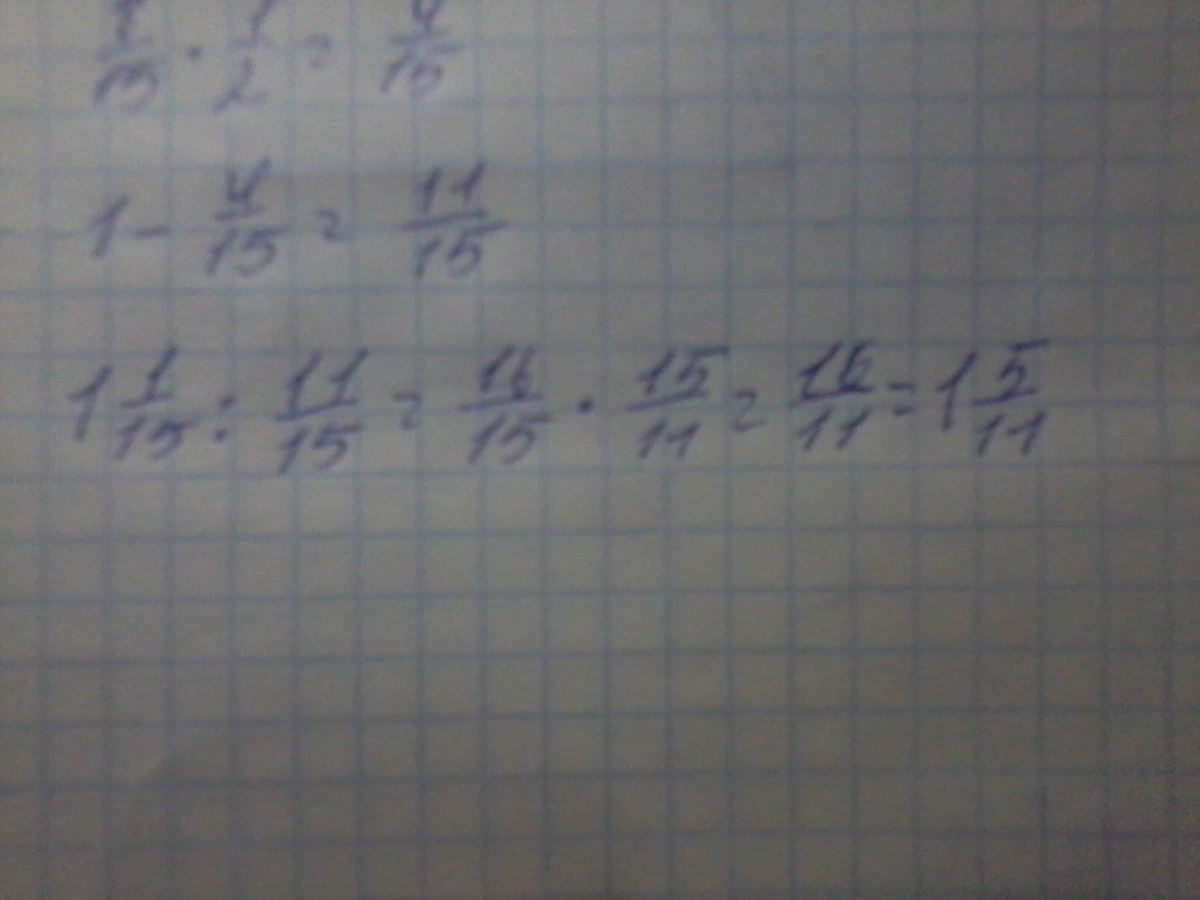 8/15 · 1/2 = 4/15
1 - 4/15 = 11/15
1 1/15 : 11/15 = 16/15 · 15/11 = 16/11 = 1 5/11